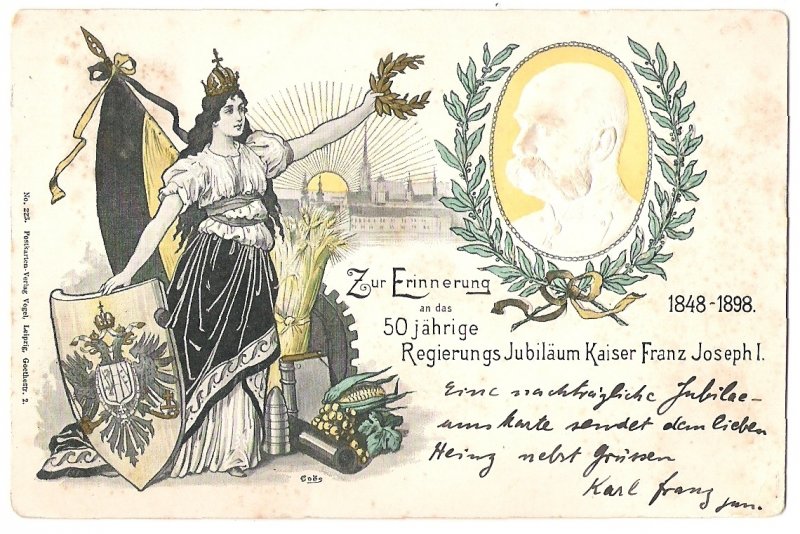 No. 223. Postkarten-Verlag Vogel, Leipzig, Goethestr. 2.
Zur Erinnerung
an das
50 jährige
Regierungs Jubiläum Kaiser Franz Joseph I.
1848-1898.
Eine nachträgliche Jubilae-
umskarte sendet dem lieben
Heinz nebst Grüssen
Karl Franz jun.